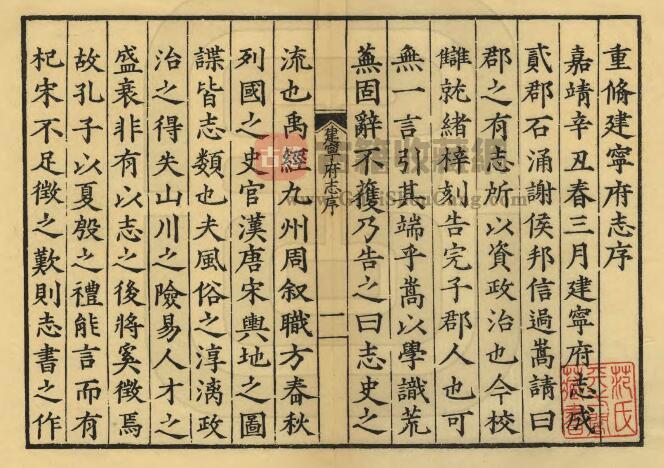 重脩建寧府志序
嘉靖辛丑春三月建寧府志成
貳郡石涌謝侯邦信過嵩請曰
郡之有志所以資政治也今校
讎就緒梓刻告完子郡人也可
無一言引其端乎嵩以學識荒
蕪固辭不獲乃告之曰志史之
建寧府志序
一
流也禹經九州周叙職方春秋
列國之史官漢唐宋輿地之圖
諜皆志類也夫風俗之淳漓政
治之得失山川之險易人才之
盛衰非有以志之後將奚徵焉
故孔子以夏殷之禮能言而有
杞宋不足徵之歎則志書之作
古籍收藏網
范氏